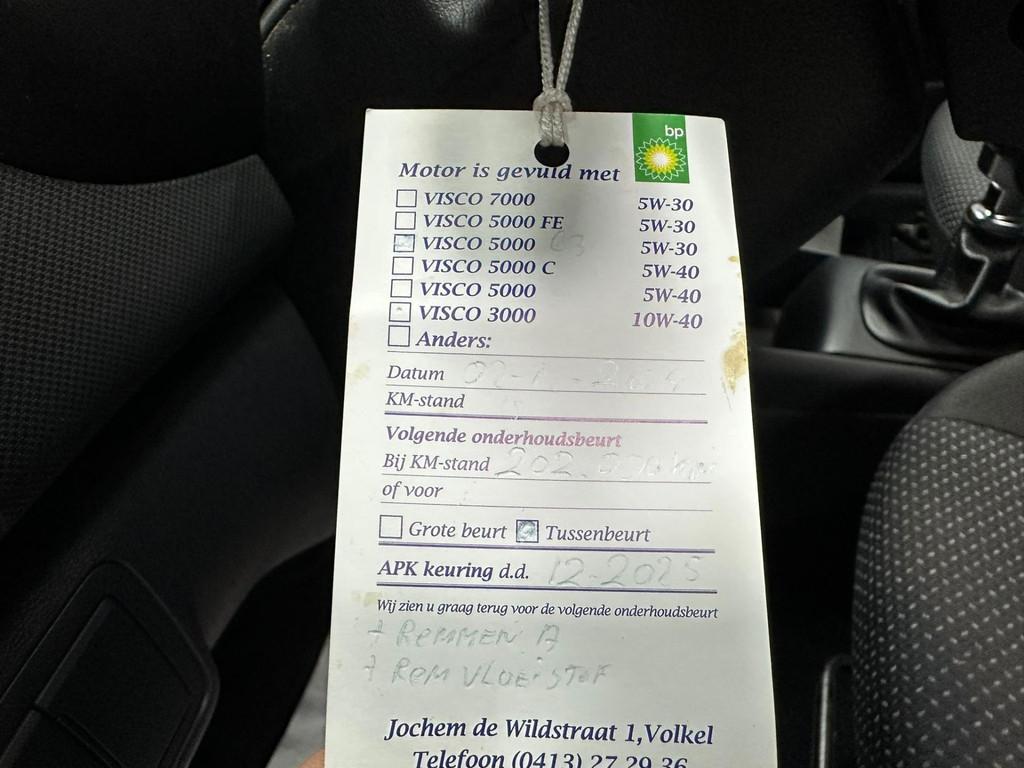 bp
Motor is gevuld met
VISCO 7000 5W-30
VISCO 5000 FE 5W-30
VISCO 5000 C3 5W-30
VISCO 5000 C 5W-40
VISCO 5000 5W-40
VISCO 3000 10W-40
Anders:
Datum
KM-stand
Volgende onderhoudsbeurt
Bij KM-stand 202.000 KM
of voor
Grote beurt Tussenbeurt
APK keuring d.d. 12-2025
Wij zien u graag terug voor de volgende onderhoudsbeurt
+ REMMEN A
+ REM VLOEISTOF
Jochem de Wildstraat 1,Volkel
Telefoon (0413) 27 29 36